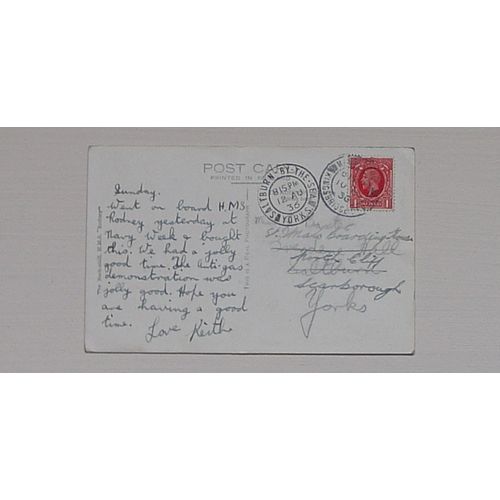 POST CA
PRINTED IN
Sunday.
Went on board H.M.S.
Rodney yesterday at
Navy Week & bought
this. We had a jolly
good time. The Anti-gas
demonstration was
jolly good. Hope you
are having a good
time.
Love Keith
SALTBURN-BY-THE-SEA
8.15 PM
12 AU
36
YORKS
36
St. Mary Boarding House
North Cliff
Saltburn
Scarborough
Yorks